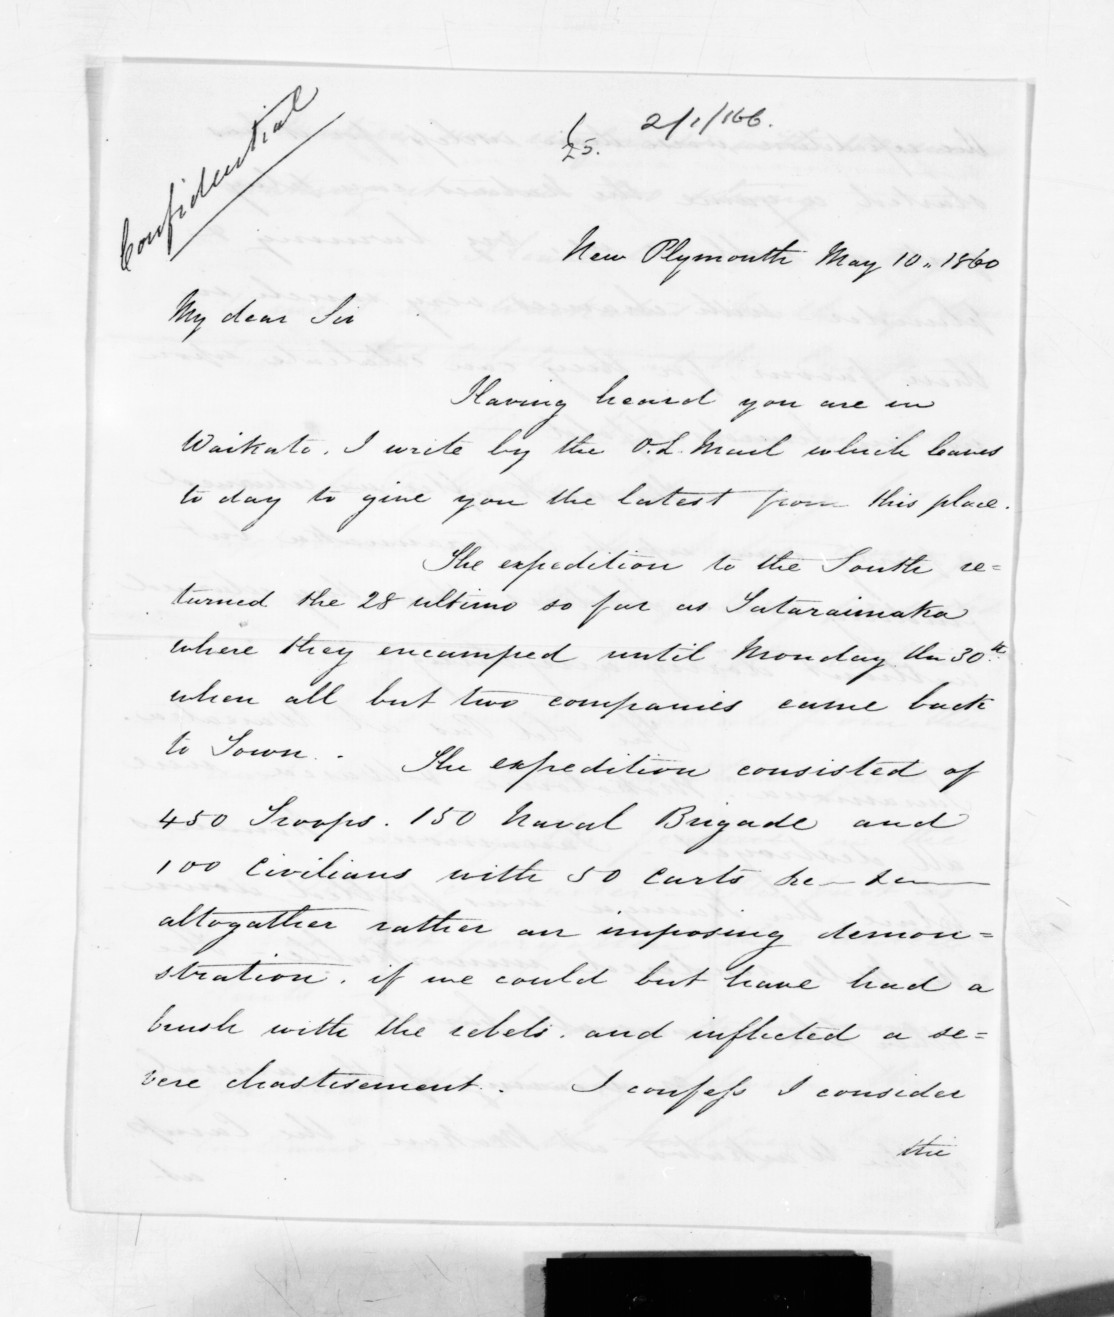 Confidential
2/1/166.
25.
New Plymouth May 10. 1860
My dear Sir
Having heard you are in
Waikato. I write by the O.L. Mail which leaves
to day to give you the latest from this place.
The expedition to the South re=
turned the 28 ultimo so far as Tataraimaka
where they encamped until Monday the 30th
when all but two companies came back
to Town. The expedition consisted of
450 Troops. 150 Naval Brigade and
100 Civilians with 50 Carts
altogather rather an imposing demon=
stration. if we could but have had a
brush with the rebels. and inflected a se=
vere chastisement. I confess I consider
the